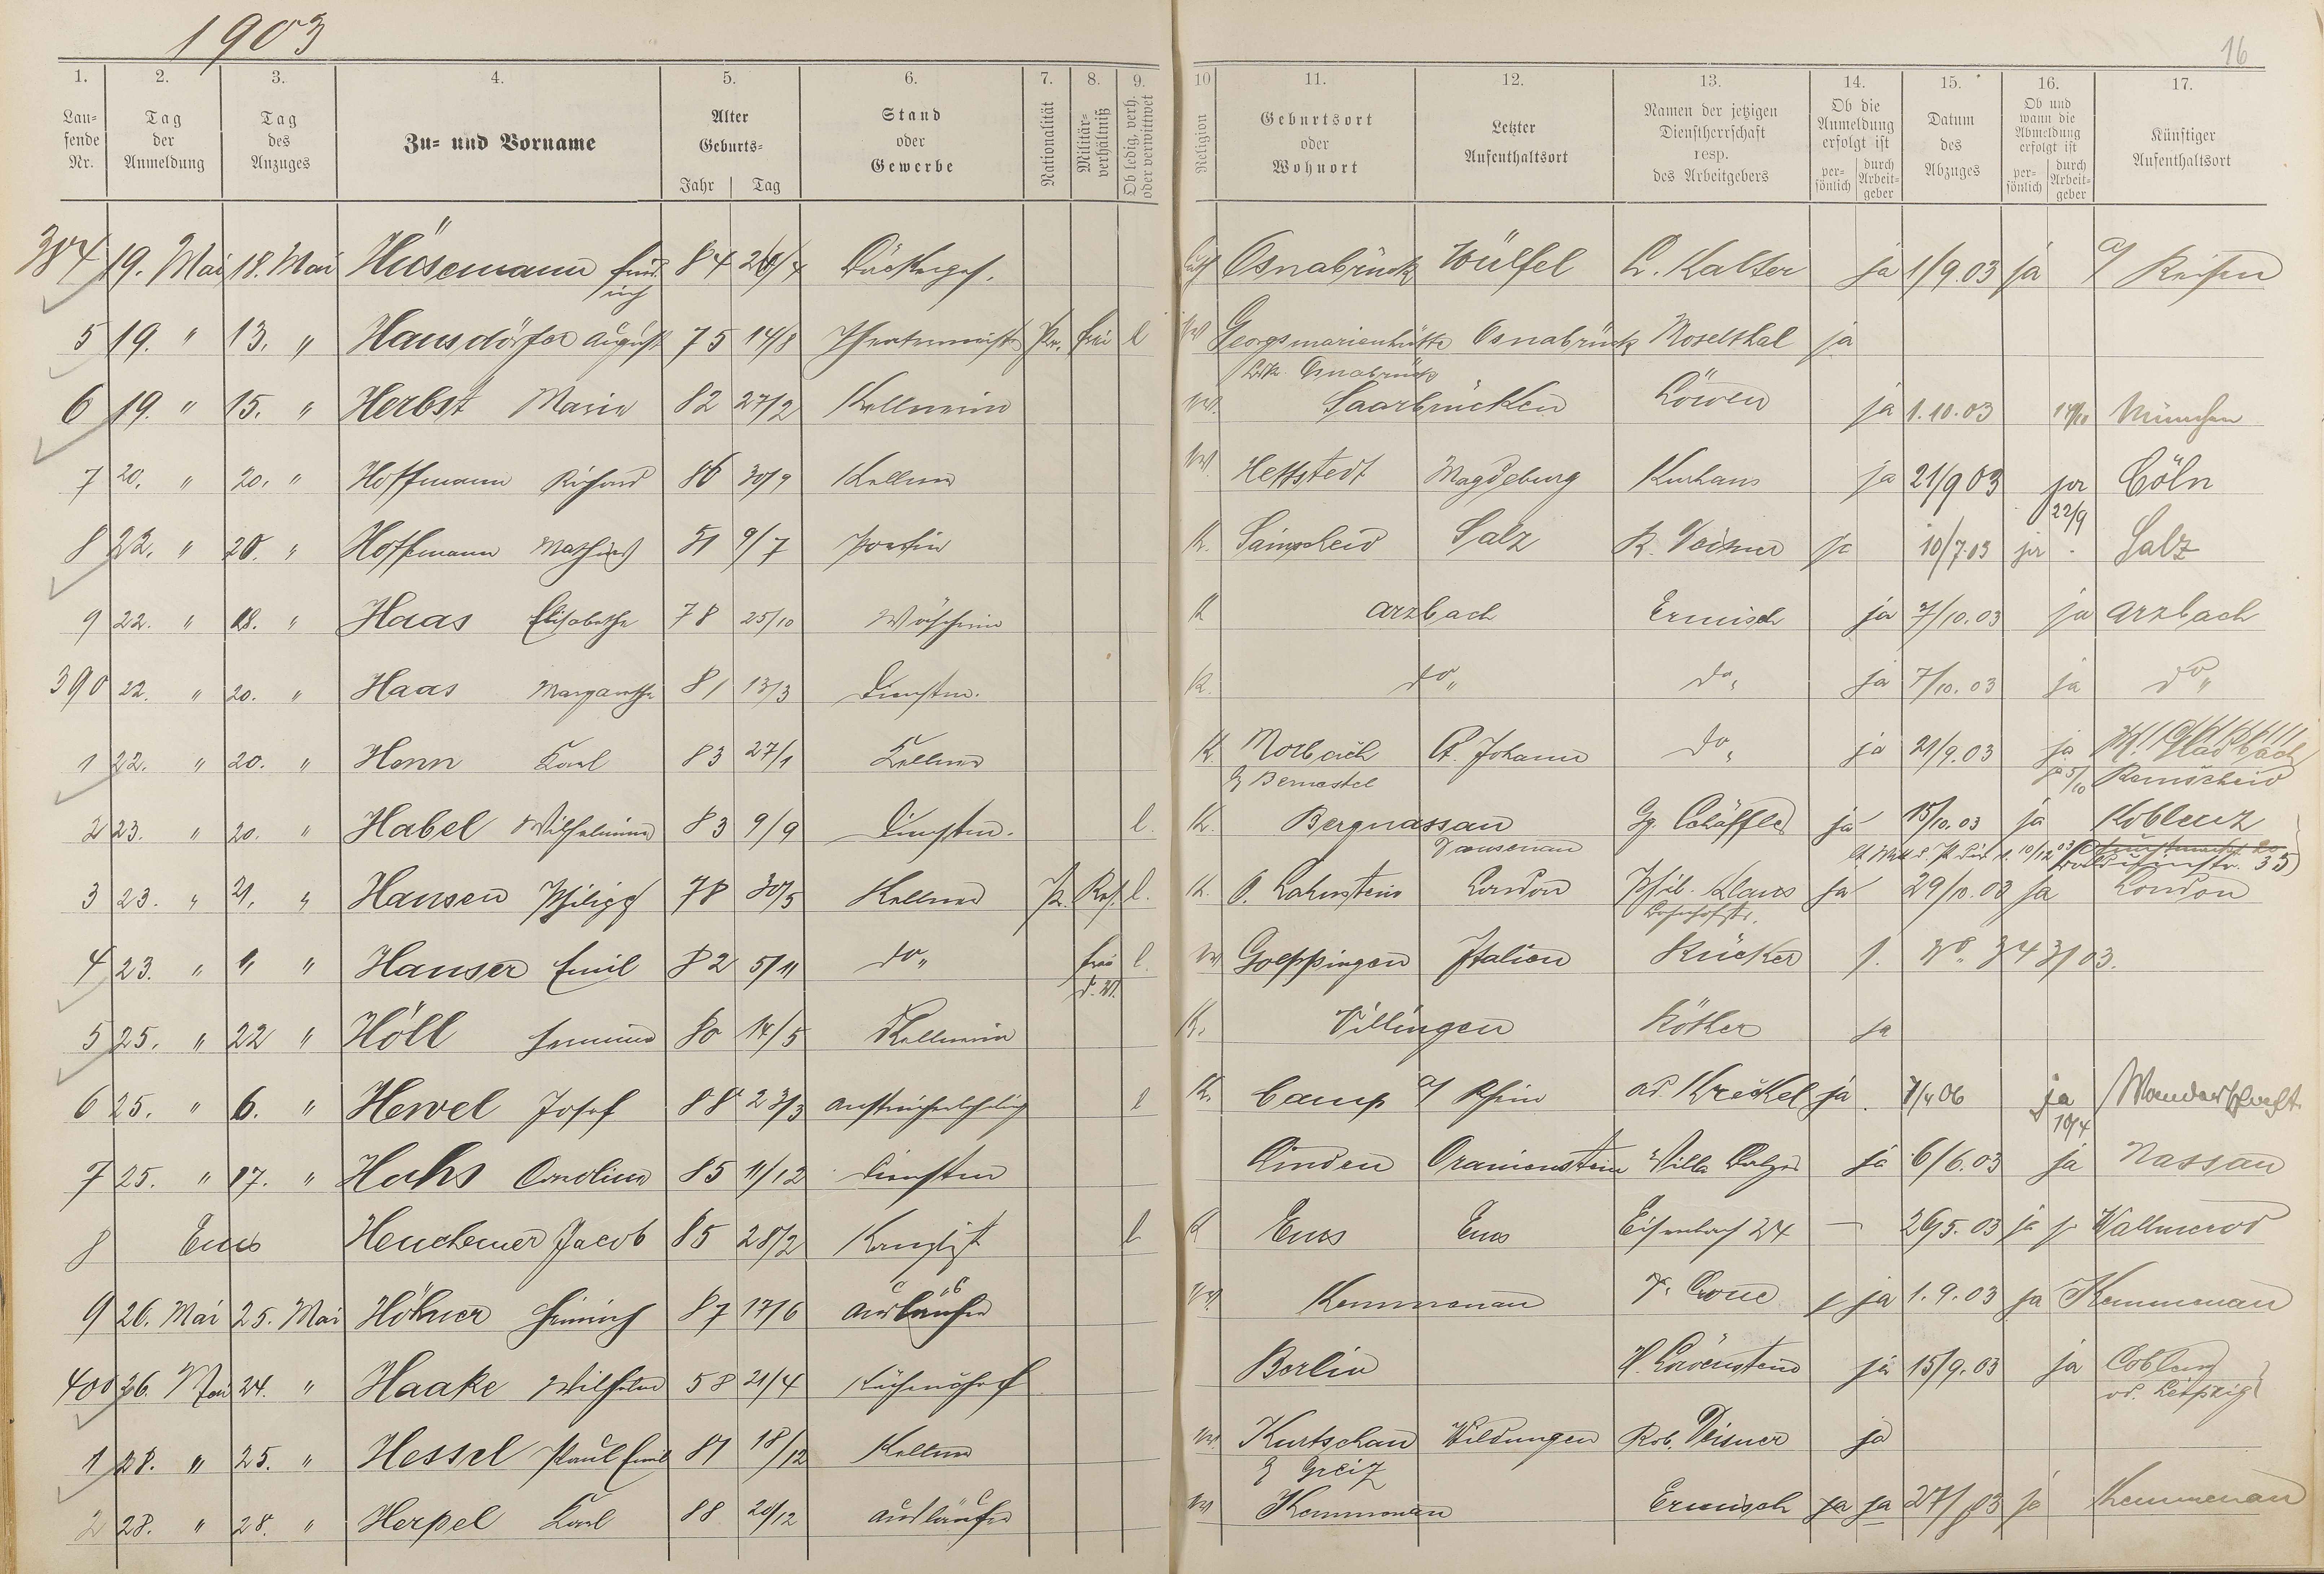 1903
16
1. 2. 3. 4. 5. 6. 7. 8. 9. 10 11. 12. 13. 14. 15. 16. 17.
Lau-
fende
Nr.
Tag
der
Anmeldung
Tag
des
Anzuges
Zu- und Vorname
Alter
Geburts-
Jahr Tag
Stand
oder
Gewerbe
Nationalität
Militär-
verhältniß
Ob ledig, verh.
oder verwittwet
Religion
Geburtsort
oder
Wohnort
Letzter
Aufenthaltsort
Namen der jetzigen
Dienstherrschaft
resp.
des Arbeitgebers
Ob die
Anmeldung
erfolgt ist
per-
sönlich
durch
Arbeit-
geber
Datum
des
Abzuges
Ob und
wann die
Abmeldung
erfolgt ist
per-
sönlich
durch
Arbeit-
geber
Künftiger
Aufenthaltsort
384 19. Mai 18. Mai Hüsemann 84 Osnabrück Wülfel L. Kalter ja 1/9.03 ja a/ Reisen
5 19. " 13. " Hausdörfer August 75 14/8 Pr. frei l Georgsmarienhütte Osnabrück Moselthal ja
Osnabrück
6 19. " 15. " Herbst Marie 82 27/2 Kellnerin Saarbrücken Löwen ja 1.10.03 München
7 20. " 20. " Hoffmann Richard 86 30/9 Kellner Hettstedt Magdeburg Kurhaus ja 21/9 03 ja Cöln
22/9
8 22. " 20. " Hoffmann Mathias 51 9/7 K. Sainscheid Salz R. Deisner ja 10/7.03 ja Salz
9 22. " 18. " Haas Elisabethe 78 25/10 Wäscherin K Arzbach Ermisch ja 7/10.03 ja Arzbach
390 22. " 20. " Haas Margarethe 81 13/3 Dienstm. K. do " do " ja 7/10.03 ja do "
1 22. " 20. " Henn Karl 83 27/1 Kellner K. Morbach St. Johann do " ja 21/9.03 ja M. Gladbach
Bernastel ja 5/10 Remscheid
2 23. " 20. " Habel Wilhelmine 83 9/9 Dienstm. l. K. Bergnassau Gg. Schäffler ja 15/10.03 ja Koblenz
Dausenau 35
3 23. " 21. " Hansen Philipp 78 30/5 Kellner Pr. Res. l. K. O. Lahnstein London Phil. Klaus ja 29/10.03 ja London
Bahnhofstr.
4 23. " " " Hauser Emil 82 5/11 do " frei l. Goeppingen Italien Rücker
5 25. " 22 " Höll Hermine 80 14/5 Kellnerin K. Villingen Köther ja
6 25. " 6. " Hewel Josef 88 23/3 Anstreicherlehrling l K. Camp a/ Rhein Ad. Kreckel ja 7/4 06 ja Wanderschaft.
10/4
7 25. " 17. " Hahs Caroline 85 11/12 Dienstm Linden Oranienstein Villa Balzer ja 6/6.03 ja Nassau
8 Ems Heuchemer Jacob 85 28/2 Kanzlist l K Ems Ems Eisenbach 24 — 29/5.03 ja Wallmerod
9 26. Mai 25. Mai Höhner Heinrich 87 17/6 Ausläufer Kemmenau ja 1.9.03 ja Kemmenau
400 26. Mai 24. " Haake Wilhelm 58 21/4 Küchenchef Berlin H. Löwenstein ja 15/9.03 ja Coblenz
od. Leipzig
1 28. " 25. " Hessel Paul Emil 81 18/12 Kellner Kurtschau Wildungen Rob. Deisner ja
Greiz
2 28. " 28. " Herpel Karl 88 20/12 Ausläufer Kemmenau Ermisch ja ja ja Kemmenau